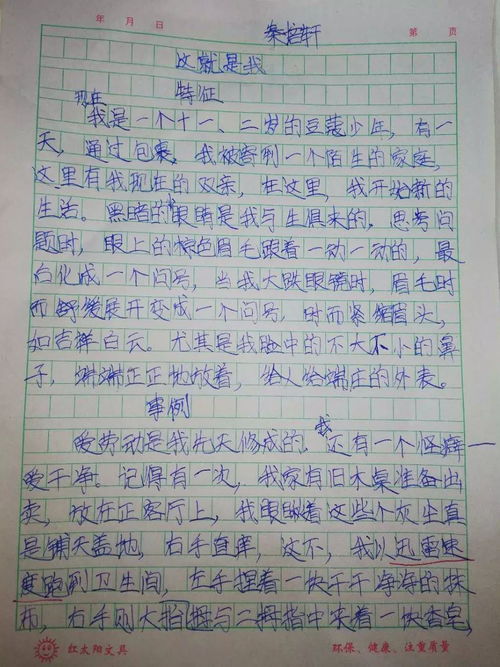 年 月 日 第 页
秦培轩
这就是我
特征
现在
我是一个十一、二岁的豆蔻少年，有一
天，通过包裹，我被寄到一个陌生的家庭，
这里有我现在的双亲，在这里，我开始新的
生活。黑暗的眼睛是我与生俱来的。思考问
题时，眼上的棕色眉毛跟着一动一动的，最
后化成一个问号，当我大跌眼镜时，眉毛时
而舒缓展开变成一个问号，时而紧缩眉头，
如吉祥白云。尤其是我脸中的不大不小的鼻
子，端端正正地放着，给人给端庄的外表。
事例
我
爱劳动是我先天修成的。还有一个怪癖一
爱干净。记得有一次，我家有旧木桌准备出
卖，放在正客厅上，我眼瞅着这些个灰尘直
是铺天盖地，右手直痒，这不，我以迅雷速
度跑到卫生间，左手捏着一块干干净净的抹
布，右手则大拇拇与二拇指中夹着一块香皂，
红太阳文具 环保、健康、注重质量